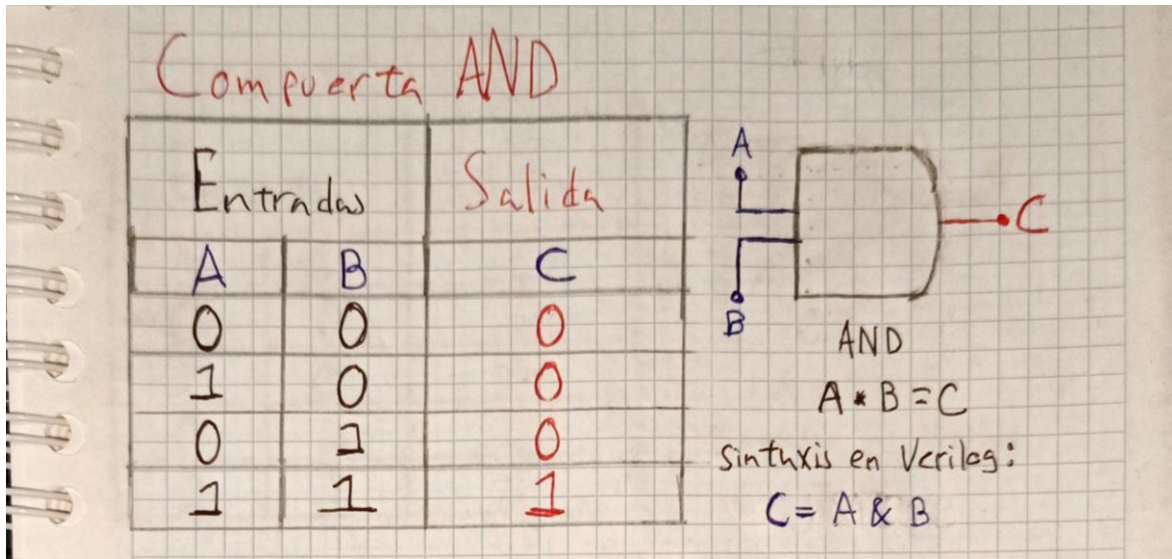 Compuerta AND
Entradas Salida
A B C
0 0 0
1 0 0
0 1 0
1 1 1
A
B
C
AND
A * B = C
sintaxis en Verilog:
C = A & B